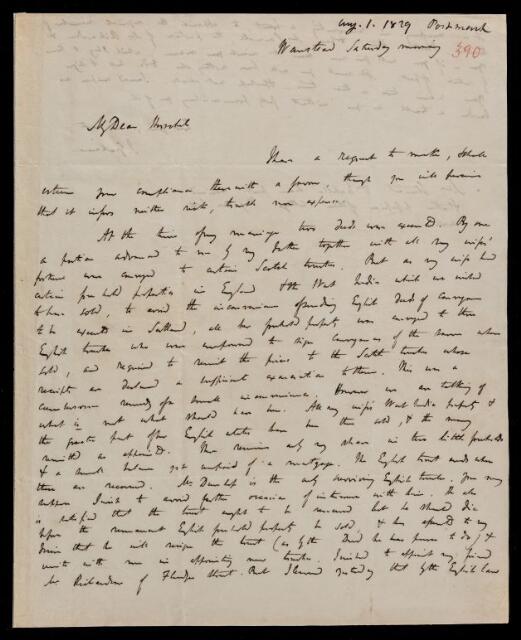 Aug. 1. 1829 Postmark
Wanstead Saturday morning
390
My Dear Herschel
I have a request to make, I shall
esteem your compliance therewith a favor though you will perceive
that it infers neither risk, trouble nor expense
At the time of my marriage two Deeds were executed. By one
a portion advanced to me by my Father together with all my wife's
fortune was conveyed to certain Scotch trustees. But as my wife had
certain freehold properties in England & the West Indies which we wished
to have sold, to avoid the inconvenience of sending English Deeds of Conveyance
to be executed in Scotland, all her freehold property was conveyed to three
English trustees who were empowered to sign conveyances of the same when
sold, and required to remit the price to the Scotch trustees whose
receipts are declared a sufficient exoneration to them. This was a
cumbersome remedy of a small inconvenience, However we are talking of
what is not what should have been. All my wife's West India property &
the greater part of her English estates have been thus sold, & the money
remitted as appointed. There remains only my share in two little freeholds
& a small balance yet unpaid of a mortgage. The English trust ends when
these are recovered. Mr Dunlop is the only surviving English trustee. You may
suppose I wish to avoid further occasion of intercourse with him. He also
is satisfied that the trust ought to be renewed lest he should die
before the remanent English freehold property be sold, & he offered to my
that he will resign the trust (as by the Deed he has power to do) &
unite with me in appointing new trustees. I wished to appoint my friend
Mr Richardson of Fludyer Street. But I learned yesterday that by the English Law